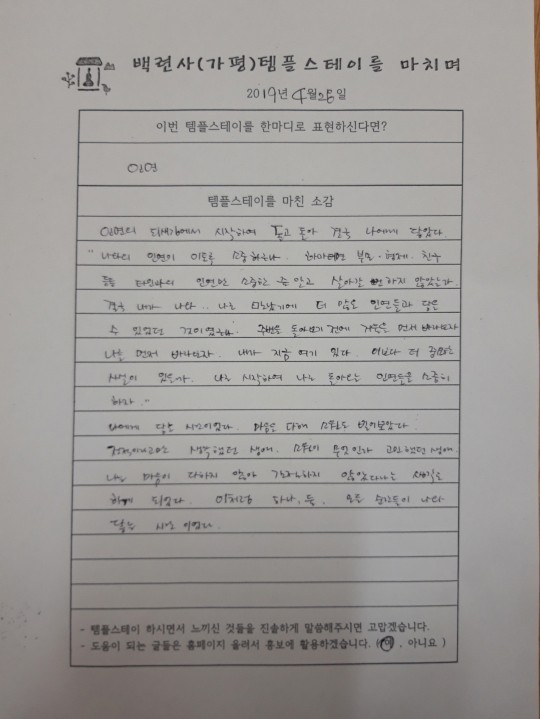 백련사(가평)템플스테이를 마치며
2019년 4월 28일
이번 템플스테이를 한마디로 표현하신다면?
인연
템플스테이를 마친 소감
인연의 되새김에서 시작하여 돌고 돌아 결국 나에게 닿았다
"나와의 인연이 이토록 소중하다. 하마터면 부모·형제, 친구
들 타인과의 인연만 소중한 줄 알고 살아갈 뻔 하지 않았는가.
결국 내가 나라.. 나는 더 많은 인연들과 닿을
수 있었던 것이였구나. 주변을 돌아보기 전에 거울을 먼저 바라보자
나를 먼저 바라보자. 내가 지금 여기 있다. 이보다 더 중요한
사실이 있는가. 나로 시작하여 나로 돌아오는 인연들을 소중히
하자."
나에게 닿는 시간이었다. 마음을 다해 소원도 빌어보았다.
생각했던 생애. 소원이 무엇인가 고민했던 생애.
나는 마음이 다하지 않아 간절하지 않았다라는 생각을
하게 되었다. 이처럼 하나, 둘. 모든 순간들이 나와
닿는 시간 이였다.
- 템플스테이 하시면서 느끼신 것들을 진솔하게 말씀해주시면 고맙겠습니다.
- 도움이 되는 글들은 홈페이지 올려서 홍보에 활용하겠습니다. (예, 아니요)